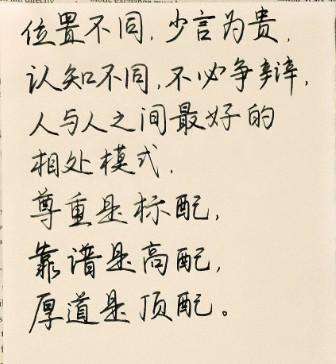 位置不同，少言为贵，
认知不同，不必争辩，
人与人之间最好的
相处模式，
尊重是标配，
靠谱是高配，
厚道是顶配。